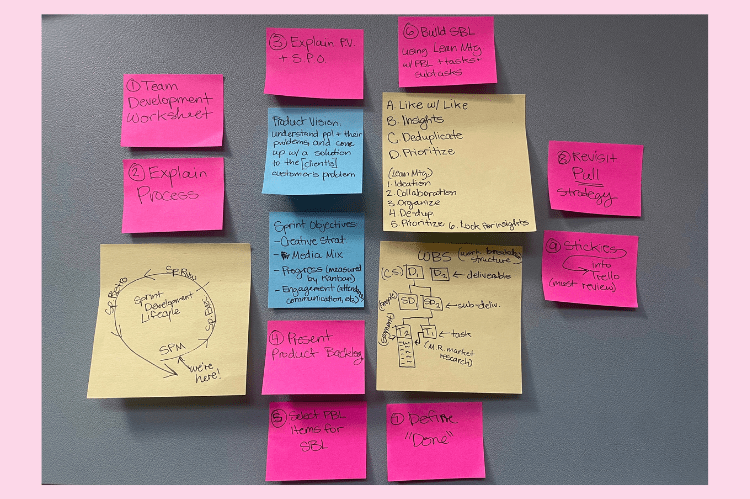 ① Team
Development
Worksheet
② Explain
Process
SP.Retro
SP.Rvw
Sprint
Development
Lifecycle
SP.Exec
SPM
we're
here!
③ Explain P.V.
+ S.P.O.
Product Vision:
understand ppl + their
problems and come
up w/ a solution
to the [client's]
customer's problem
Sprint Objectives
- Creative Strat
- Media Mix
- Progress (measured
by Kanban)
- Engagement (attendance,
communication, etc)
④ Present
Product Backlog
⑤ Select PBL
items for
SBL
⑥ Build SBL
using Lean Mtg
w/ PBL + tasks +
subtasks
A. Like w/ Like
B. Insights
C. Deduplicate
D. Prioritize
(Lean Mtg)
1. Ideation
2. Collaboration
3. Organize
4. De-dup
5. Prioritize 6. Look for insights
WBS (work breakdown
structure)
(CS) D₁ D₂ ← deliverable
SD₁ SD₂ ← sub-deliv.
(segment)
T₂ T₁ ← task
(M.R. market
research)
⑦ Define
"Done"
⑧ Revisit
Pull
strategy
⑨ Stickies
into
Trello
(must review)